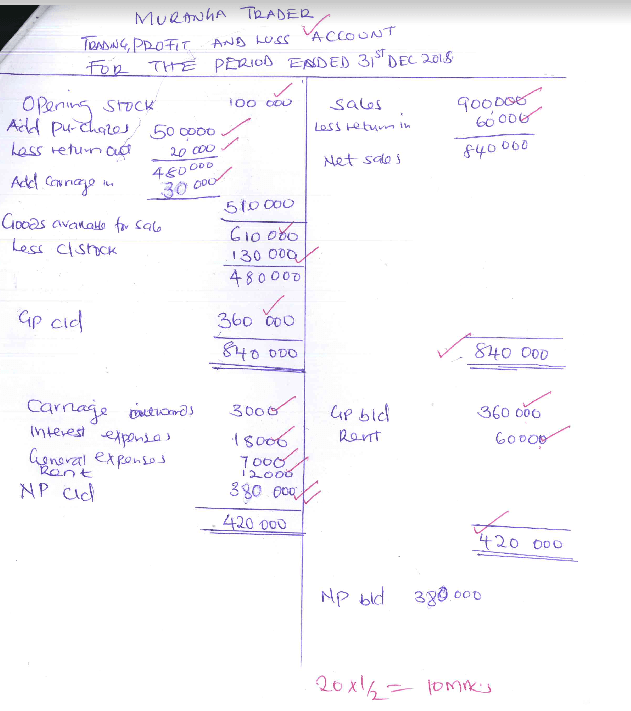 MURANGA TRADER
TRADING, PROFIT AND LOSS ACCOUNT
FOR THE PERIOD ENDED 31ST DEC 2018
Opening Stock 100 000 Sales 900000
Add purchases 500000 Less return in 60 000
Less return out 20 000 840 000
480000 Net sales
Add Carriage in 30 000
510 000
Goods available for sale 610 000
Less c/stock 130 000
480000
GP c/d 360 000
840 000 840 000
Carriage outwards 3000 GP b/d 360 000
Interest expenses 18000 Rent 60000
General expenses 7000
Rent 12000
NP c/d 380 000
420 000 420 000
NP b/d 380.000
20 x 1/2 = 10 mks